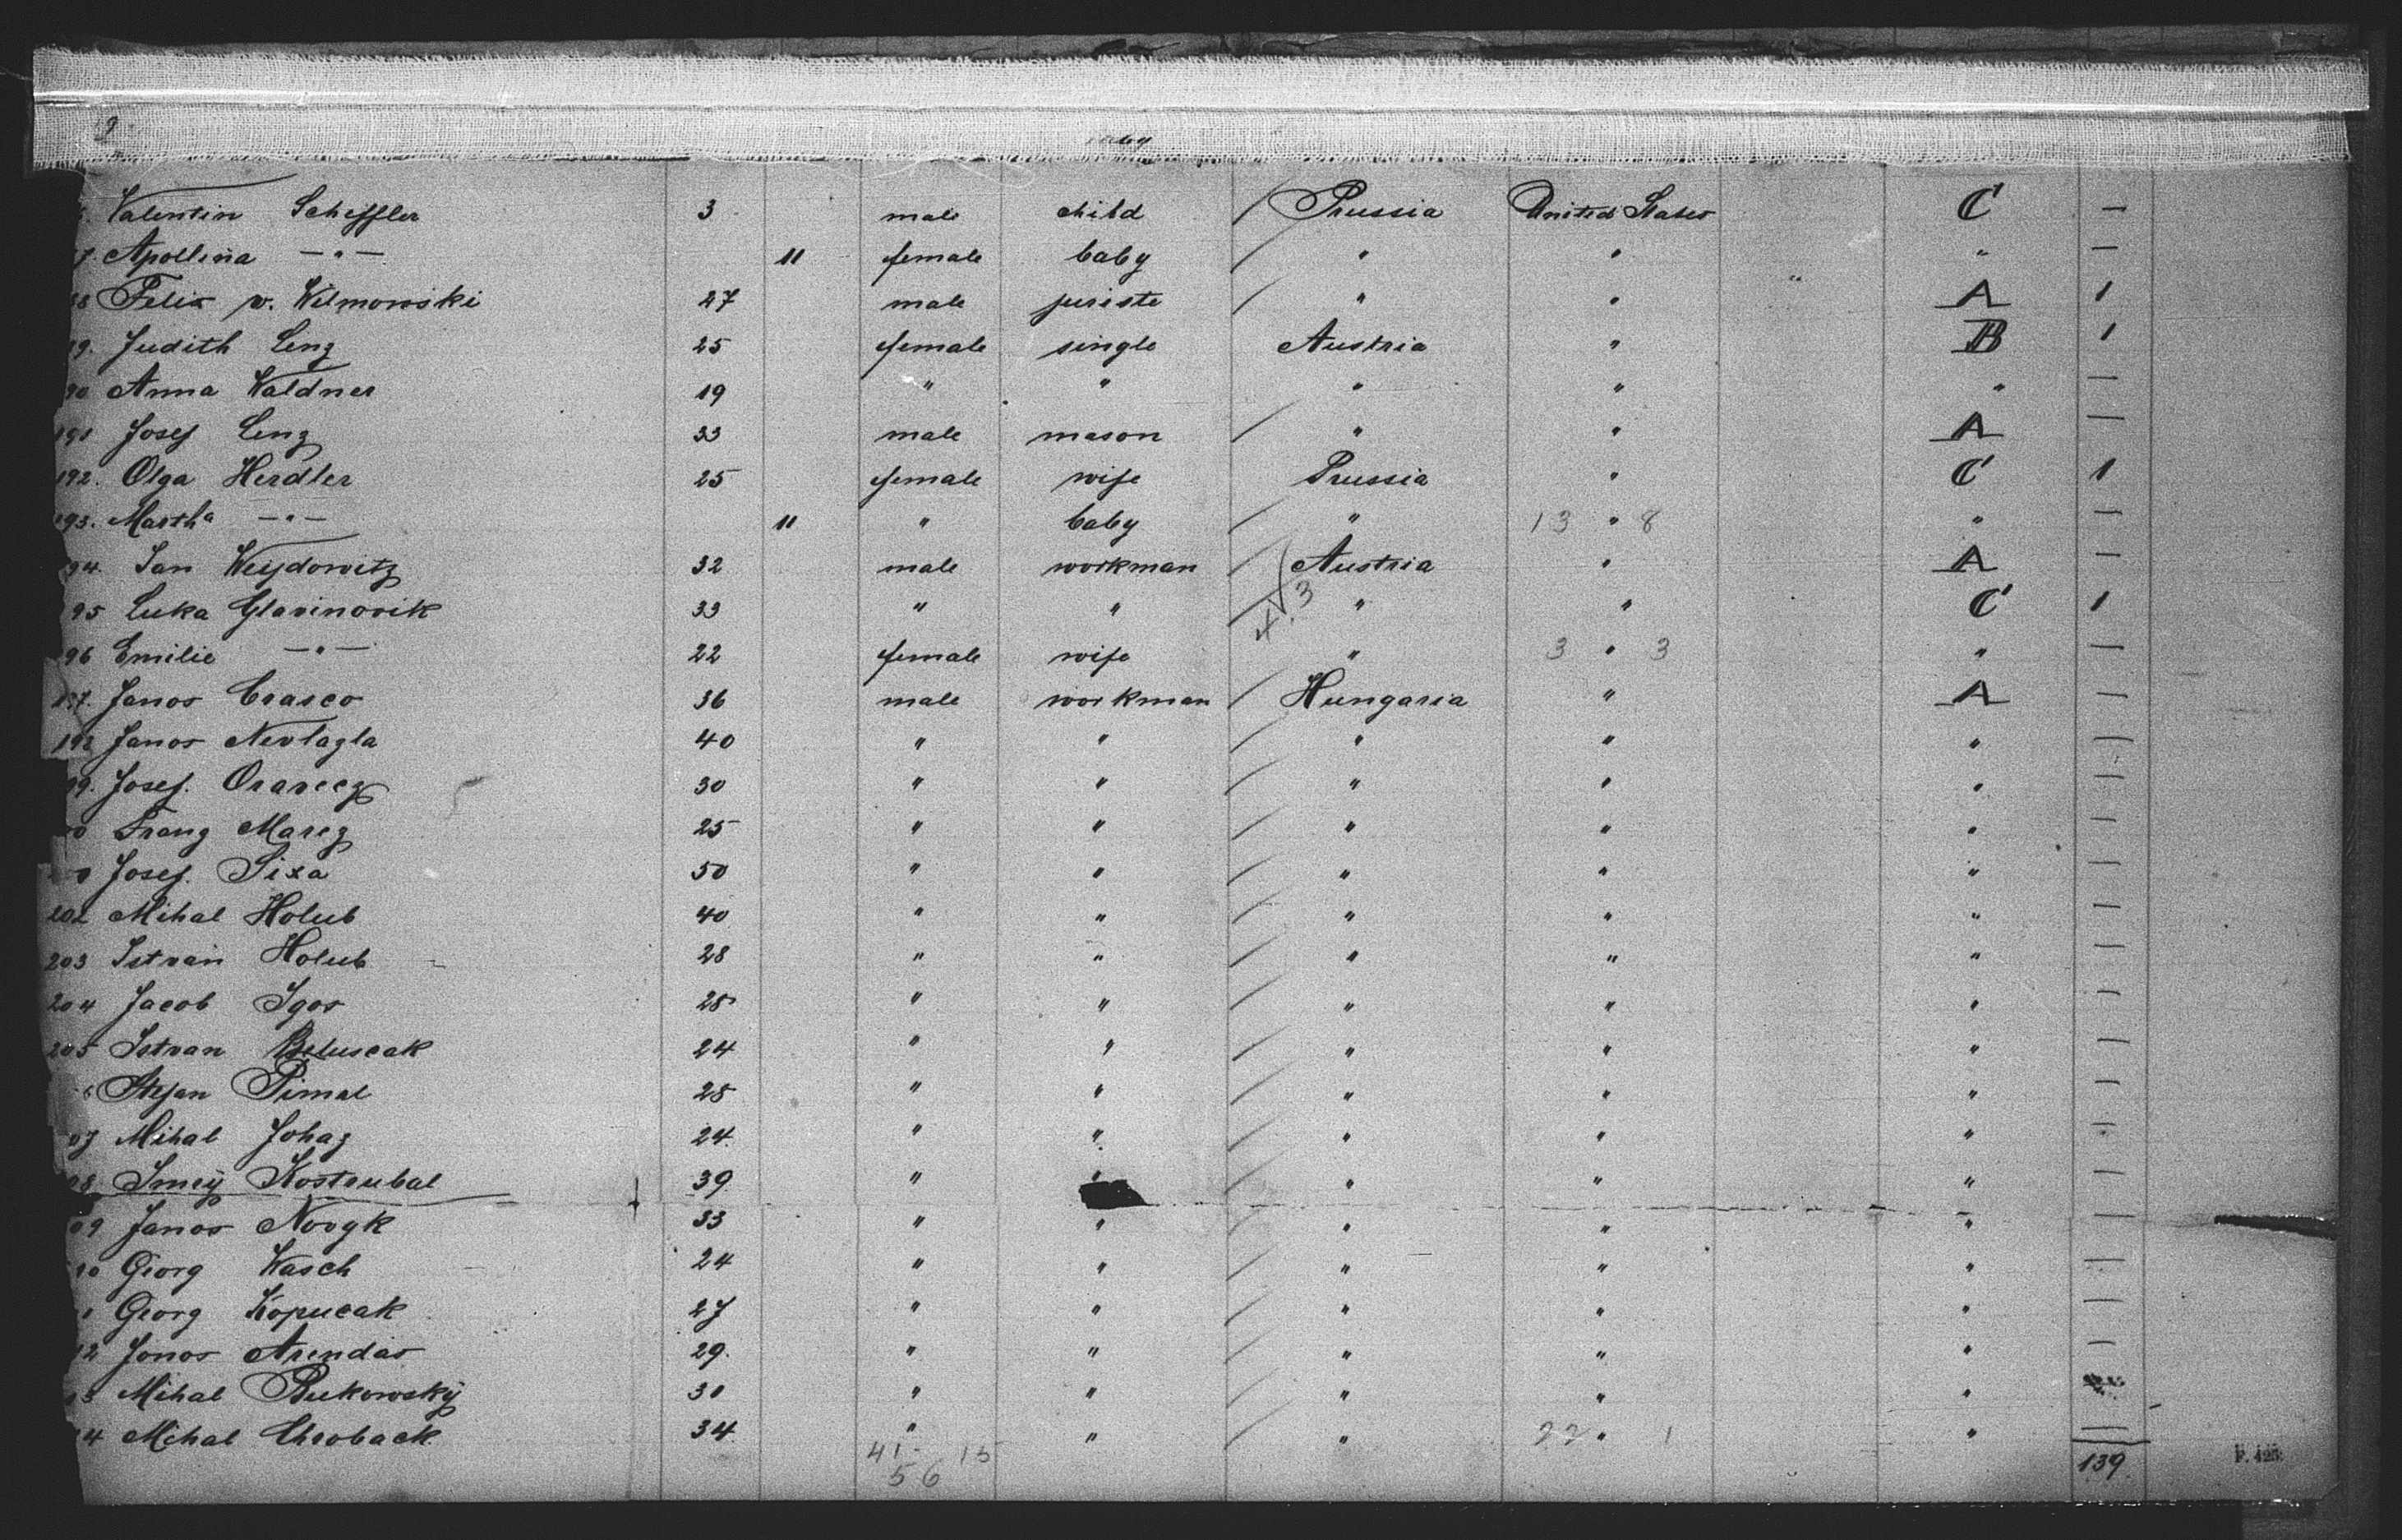 baby
Valentin Scheffler 3 male child / Prussia United States C —
7. Apollina —"— 11 female baby / " " " —
88 Felix v. Wilmowski 27 male juriste / " " " A 1
89. Judith Lenz 25 female single Austria " B 1
90 Anna Waldner 19 " " " " " —
191 Josef Lenz 33 male mason / " " A —
192. Olga Herdler 25 female wife Prussia " C 1
193. Martha —"— 11 " baby / " 13 " 8 " —
94. Jan Weydowitz 32 male workman / Austria " A —
95 Luka Glavinovik 33 " " / 4 3 " " C 1
96 Emilie —"— 22 female wife " 3 " 3 " —
197. Janos Crasco 36 male workman / Hungaria " A —
198 Janos Nevlagla 40 " " / " " " —
99. Josef. Oravecz 30 " " / " " " —
00 Franz Marez 25 " " / " " " —
Josef. Sixa 50 " " / " " " —
202 Mihal Holub 40 " " / " " " —
203 Istvan Holub 28 " " / " " " —
204 Jacob Igor 25 " " / " " " —
205 Istvan Beluscak 24 " " / " " " —
6 Stefan Pimal 25 " " / " " " —
07 Mihal Johaz 24. " " / " " " —
08. Imrÿ Kostrubal 39. " " / " " " —
09 Janos Novyk 33 " " / " " " —
10 Georg Wasch 24 " " / " " " —
Georg Kopucak 27 " " / " " " —
12 Jonos Arendas 29. " " / " " " —
13 Mihal Bukowskÿ 30 " " / " " "
14 Mihal Chroback. 34. " " / " 22 " 1 " —
41 15
56
139.
F. 425.